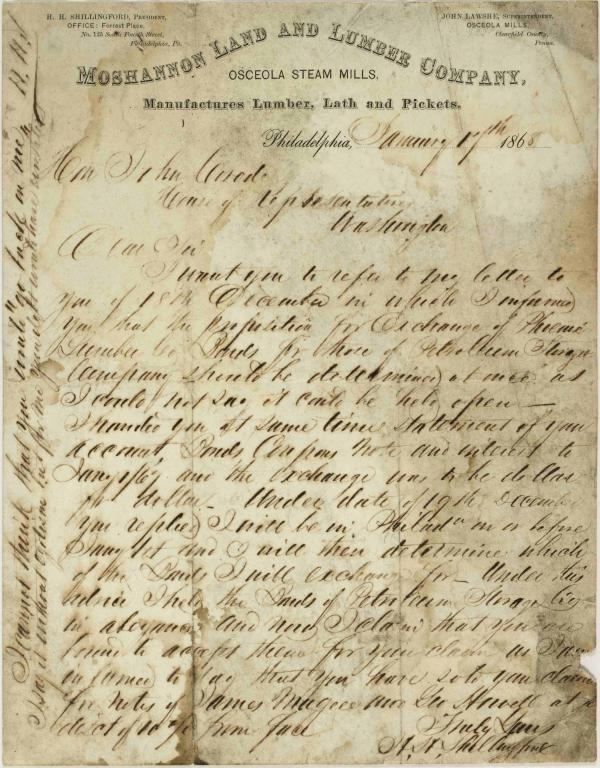 H. H. SHILLINGFORD, PRESIDENT,
OFFICE: Forrest Place,
No. 125 South Fourth Street,
Philadelphia, Pa.
JOHN LAWSHE, SUPERINTENDENT,
OSCEOLA MILLS,
Clearfield County,
Penna.
MOSHANNON LAND AND LUMBER COMPANY,
OSCEOLA STEAM MILLS,
Manufactures Lumber, Lath and Pickets.
Philadelphia, January 17th 1868
Hon John Covode
House of Representatives
Washington
Dear Sir
I want you to refer to my letter to
you of 18th December in which I informed
you that the proposition for Exchange of Phoenix
Lumber Co Bonds for those of Petroleum Storage
Company should be determined at once as
I could not say it could be held open —
I handed you at same time statement of your
account, Bonds Coupons Note and interest to
Jany and the exchange was to be dollar
for dollar — Under date of 19th December
you replied I will be in Philada on or before
Jany 1st and I will then determine which
of the Bonds I will exchange for — Under this
advice I held the Bonds of Petroleum Storage Co
in abeyance and now I claim that you are
bound to accept them for your claim as I am
informed to day that you have sold your claim
for Notes of James Magee and Geo Howell at a
deduct of 10 % from face
Truly Yours
H. H. Shillingford
I cannot think that you would "go back on me"
H. H. S